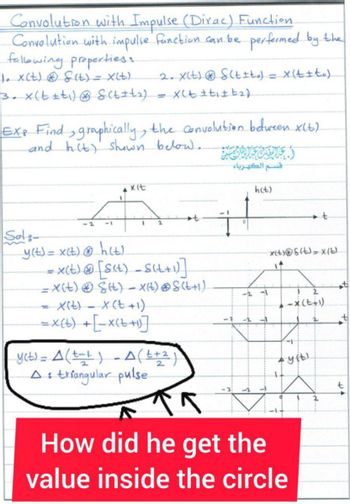 Convolution with Impulse (Dirac) Function
Convolution with impulse function can be performed by the
following properties:
1. x(t) ⊛ δ(t) = x(t)    2. x(t) ⊛ δ(t±to) = x(t±to)
3. x(t±t1) ⊛ δ(t±t2) = x(t±t1±t2)
Ex: Find, graphically, the convolution between x(t)
and h(t) shown below.
قسم الكهرباء
x(t
1
-2 -1 1 2 t
h(t)
-1 0 t
Sol:-
y(t) = x(t) ⊛ h(t)
= x(t) ⊛ [δ(t) - δ(t+1)]
= x(t) ⊛ δ(t) - x(t) ⊛ δ(t+1)
= x(t) - x(t+1)
= x(t) + [-x(t+1)]
x(t)⊛δ(t) = x(t)
1
-2 -1 1 2 t
-x(t+1)
-3 -2 -1 1 2 t
-1
y(t) = Δ(t-1/2) - Δ(t+2/2)
Δ : triangular pulse
y(t)
1
-3 -2 -1 1 2 t
-1
How did he get the
value inside the circle